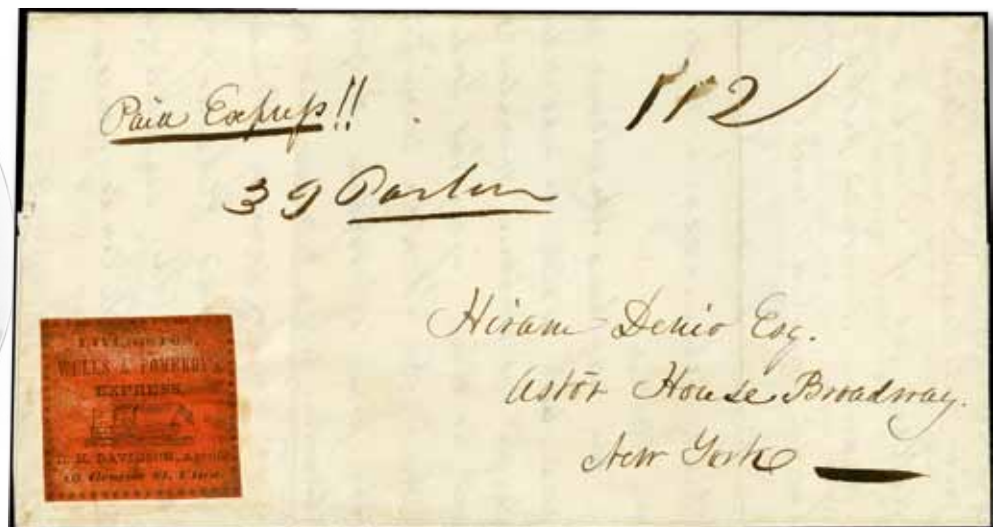 Paid Express!!
112
39 Parlor
Hiram Denio Esq.
Astor House Broadway.
New York
LIVINGSTON,
WELLS & POMEROY'S
EXPRESS,
DAVIDSON, Agent
Genesee St. Utica.